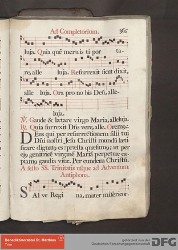 Ad Completorium. 367
luja. Quia quẽ meruisti por ta
re, alle luja. Resurrexit sicut dixit,
alle luja. Ora pro no bis Deũ, alle-
luja.
℣. Gaude & lætare virgo Maria, alleluja.
℟. Quia surrexit Dñs vere, alle. Oremus.
Deus qui per resurrectionem filii tui
Dñi nostri Jesu Christi mundũ læti
ficare dignatus es: præsta quæsumus: ut per
ejus genitricẽ virginẽ Mariã perpetuæ ca-
piamus gaudia vitæ. Per eundem Christũ.
A festo SS. Trinitatis usque ad Adventum
Antiphona.
SAlve Regi na, mater misericor-
DFG